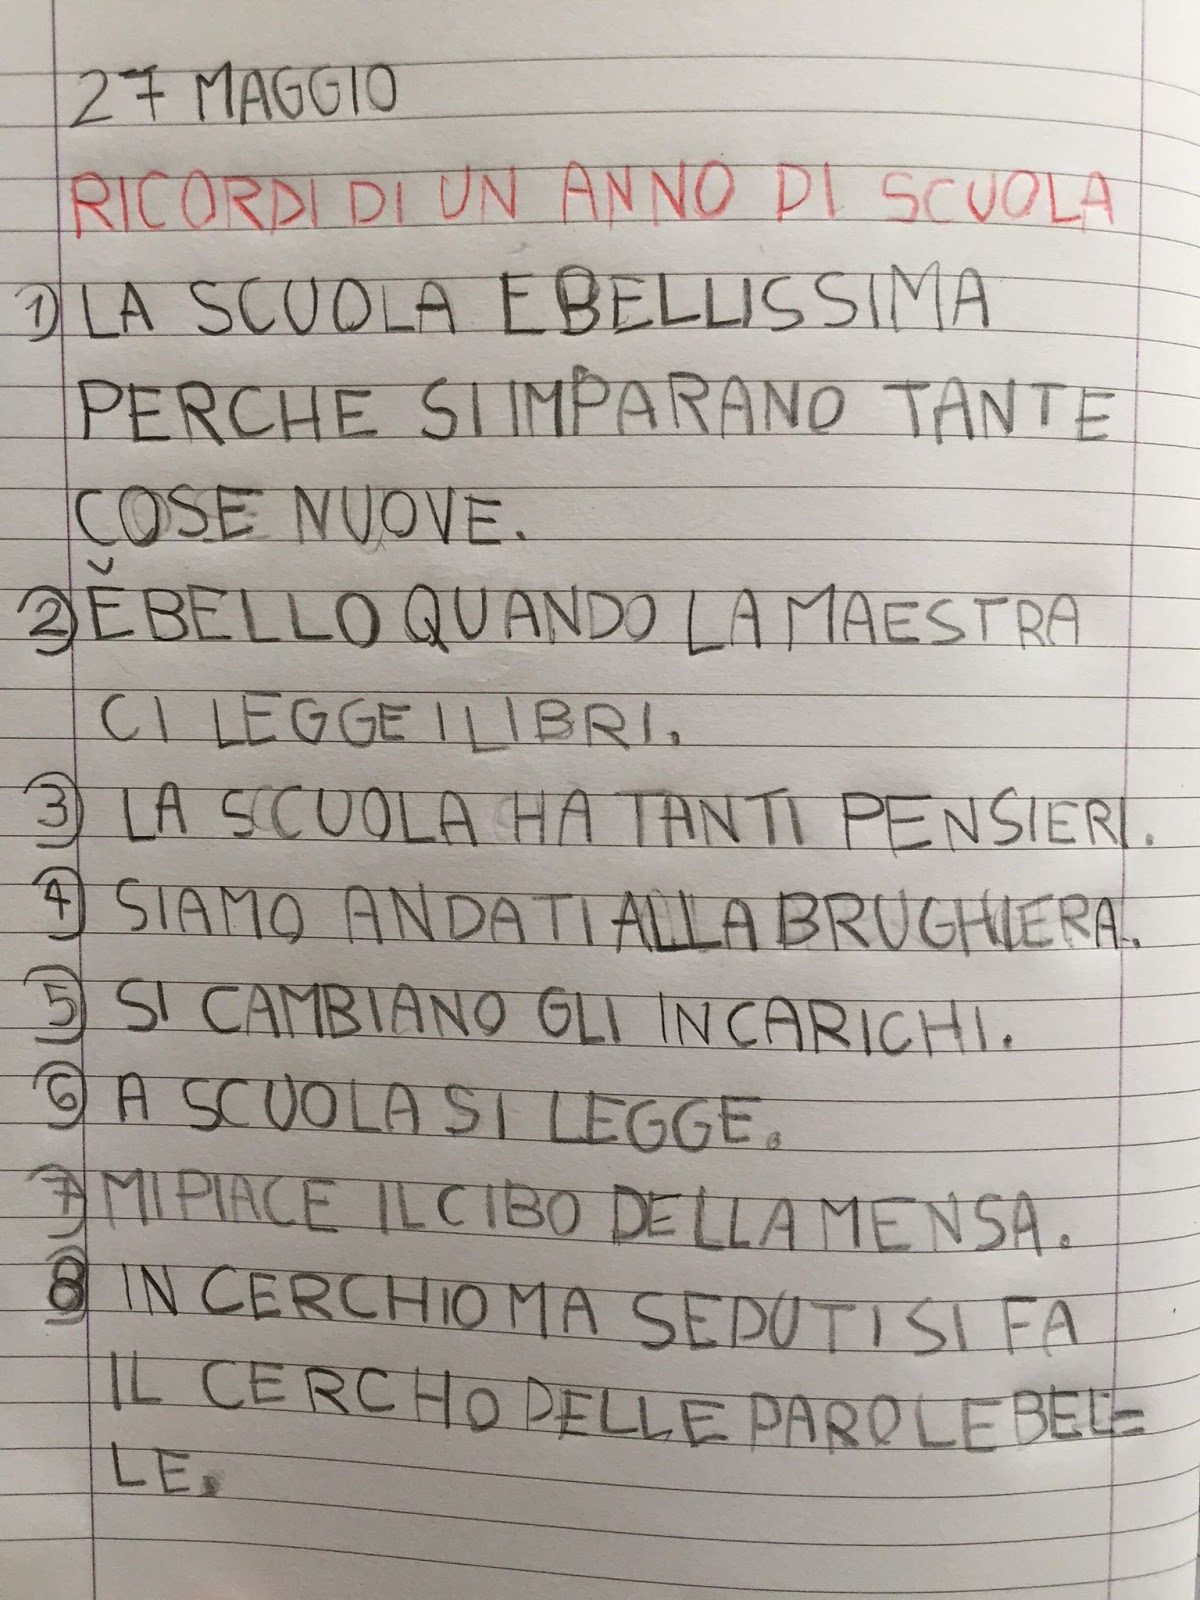 27 MAGGIO
RICORDI DI UN ANNO DI SCUOLA
1) LA SCUOLA E BELLISSIMA
PERCHE SI IMPARANO TANTE
COSE NUOVE.
2) Ĕ BELLO QUANDO LA MAESTRA
CI LEGGE I LIBRI.
3) LA SCUOLA HA TANTI PENSIERI.
4) SIAMO ANDATI ALLA BRUGHIERA.
5) SI CAMBIANO GLI INCARICHI.
6) A SCUOLA SI LEGGE.
7) MI PIACE IL CIBO DELLA MENSA.
8) IN CERCHIO MA SEDUTI SI FA
IL CERCHO DELLE PAROLE BEL=
LE.